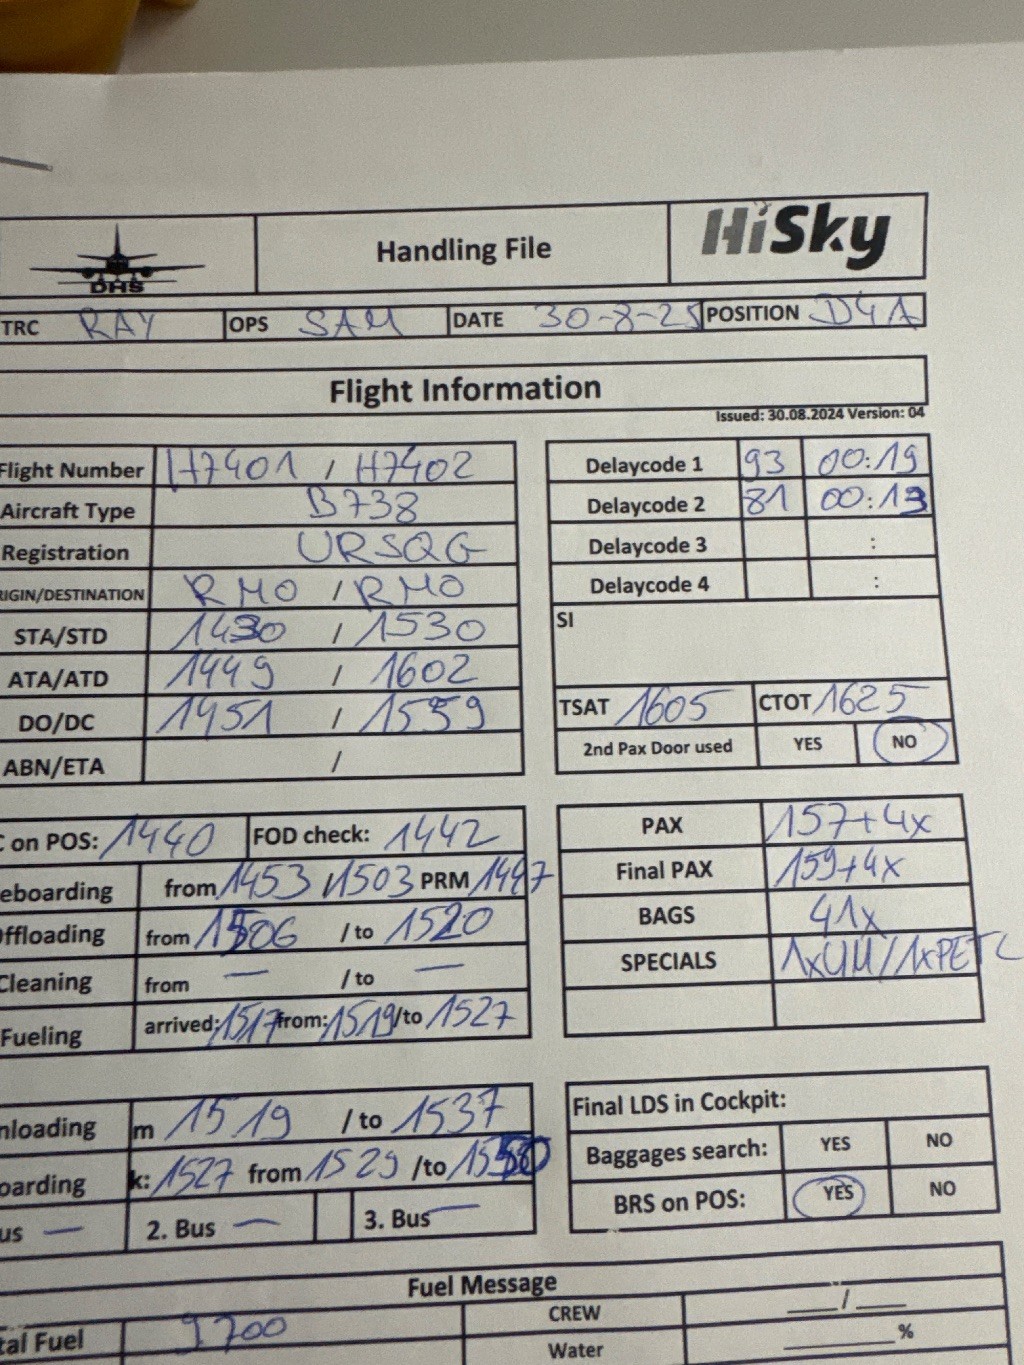 DHS Handling File HiSky
TRC RAY OPS SAM DATE 30-8-25 POSITION D4A
Flight Information
Issued: 30.08.2024 Version: 04
Flight Number H7401 / H7402
Aircraft Type B738
Registration URSQG
RIGIN/DESTINATION RMO / RMO
STA/STD 1430 / 1530
ATA/ATD 1449 / 1602
DO/DC 1451 / 1559
ABN/ETA /
Delaycode 1 93 00:19
Delaycode 2 81 00:13
Delaycode 3 :
Delaycode 4 :
SI
TSAT 1605 CTOT 1625
2nd Pax Door used YES NO
C on POS: 1440 FOD check: 1442
eboarding from 1453 / 1503 PRM 1447
ffloading from 1506 / to 1520
Cleaning from — / to —
Fueling arrived: 1517 from: 1519 /to 1527
PAX 157+4x
Final PAX 159+4x
BAGS 41x
SPECIALS 1xUM/1xPETC
nloading m 1519 / to 1537
oarding k: 1527 from 1529 /to 1550
us — 2. Bus — 3. Bus —
Final LDS in Cockpit:
Baggages search: YES NO
BRS on POS: YES NO
Fuel Message
tal Fuel 9700 CREW __/__
Water ____%